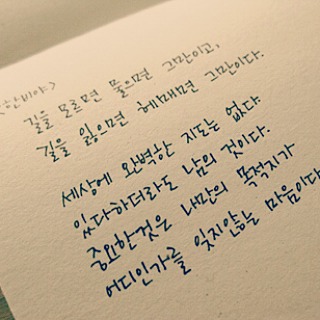 한비야>
길을 모르면 물으면 그만이고,
길을 잃으면 헤매면 그만이다.
세상에 완벽한 지도는 없다.
있다하더라도 남의 것이다.
중요한것은 나만의 목적지가
어디인가를 잊지않는 마음이다